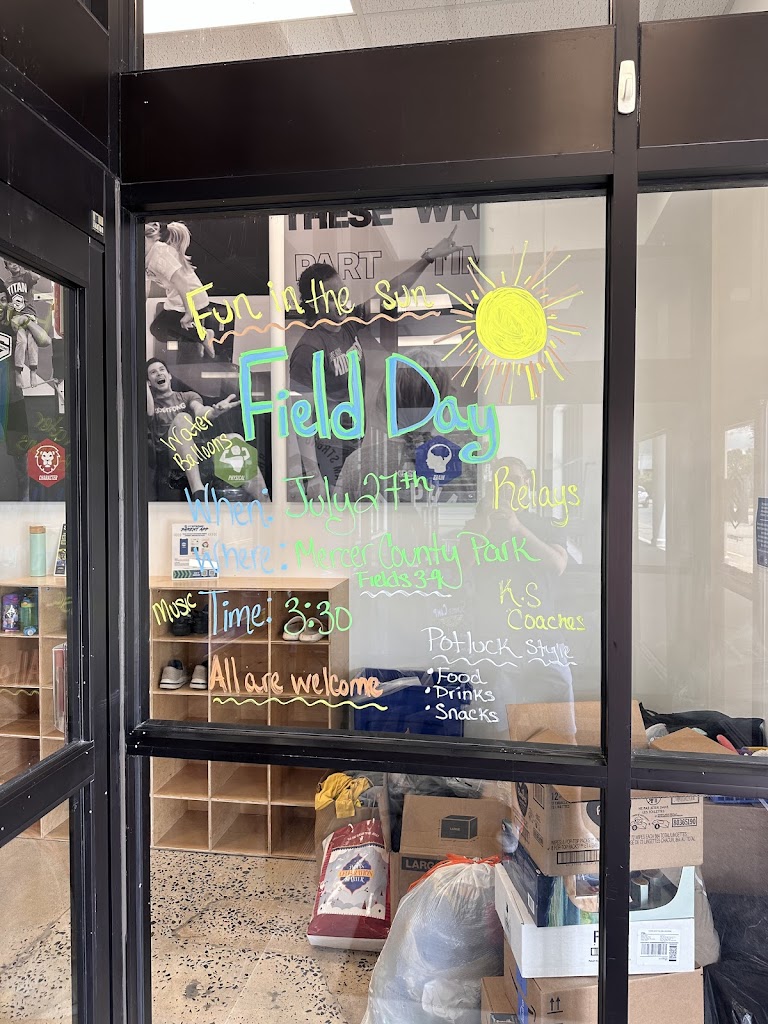 THESE WR
PART TIM
TITAN
Fun in the Sun
Field Day
Water
Balloons
PHYSICAL
BRAIN
CHARACTER
When: July 27th
Relays
Where: Mercer County Park
Fields 3-4
PARENT APP
Music
Time: 3:30
K.S
Coaches
Potluck Style
All are welcome
• Food
• Drinks
• Snacks
LARGE